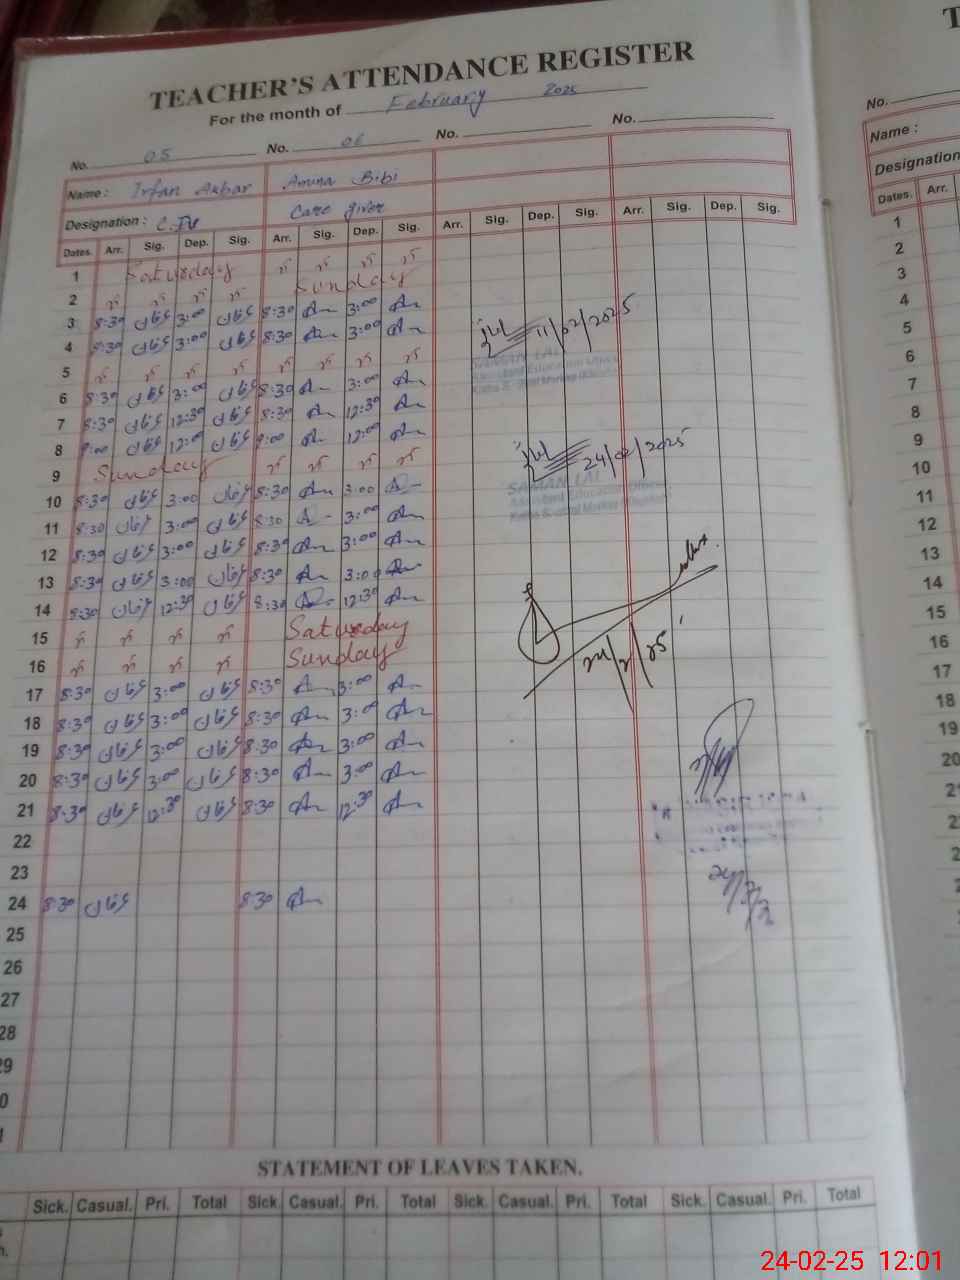 TEACHER'S ATTENDANCE REGISTER
For the month of February 2025
No. 05 No. 06 No. No.
Name : Irfan Akbar Amina Bibi
Designation : C.IV Care giver
Dates. Arr. Sig. Dep. Sig. Arr. Sig. Dep. Sig. Arr. Sig. Dep. Sig. Arr. Sig. Dep. Sig.
1 Saturday
2 Sunday
3 8:30 عرفان 3:00 عرفان 8:30 3:00
4 8:30 عرفان 3:00 عرفان 8:30 3:00
11/02/2025
SAMAN LAL
5
6 8:30 عرفان 3:00 عرفان 8:30 3:00
7 8:30 عرفان 12:30 عرفان 8:30 12:30
8 9:00 عرفان 12:00 عرفان 9:00 12:00
9 Sunday
24/02/2025
SAMAN LAL
Assistant Education Officer
10 8:30 عرفان 3:00 عرفان 8:30 3:00
11 8:30 عرفان 3:00 عرفان 8:30 3:00
12 8:30 عرفان 3:00 عرفان 8:30 3:00
13 8:30 عرفان 3:00 عرفان 8:30 3:00
14 8:30 عرفان 12:30 عرفان 8:30 12:30
15 Saturday
16 Sunday
24/2/25
17 8:30 عرفان 3:00 عرفان 8:30 3:00
18 8:30 عرفان 3:00 عرفان 8:30 3:00
19 8:30 عرفان 3:00 عرفان 8:30 3:00
20 8:30 عرفان 3:00 عرفان 8:30 3:00
21 8:30 عرفان 12:30 عرفان 8:30 12:30
22
23
24 8:30 عرفان 8:30
25
26
27
28
STATEMENT OF LEAVES TAKEN.
Sick. Casual. Pri. Total Sick. Casual. Pri. Total Sick. Casual. Pri. Total Sick. Casual. Pri. Total
No.
Name :
Designation
Dates. Arr.
1
2
3
4
5
6
7
8
9
10
11
12
13
14
15
16
17
18
19
20
24-02-25 12:01